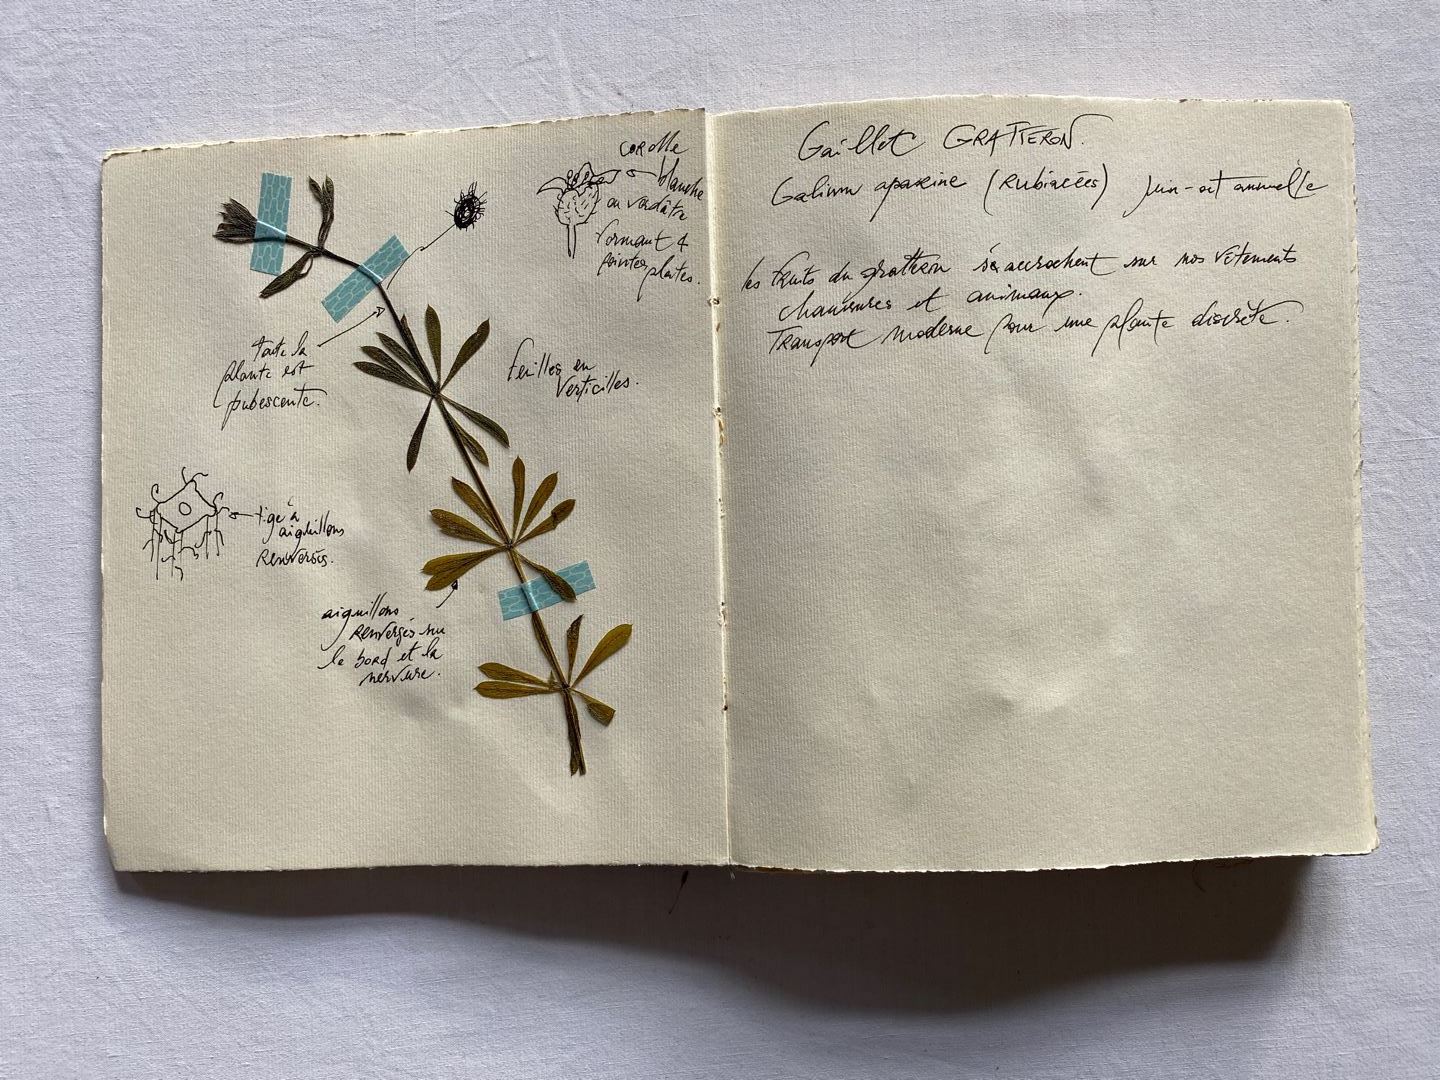 corolle
blanche
ou verdâtre
formant 4
pointes plates.
toute la
plante est
pubescente.
feuilles en
verticilles.
tige à
aiguillons
renversés.
aiguillons
renversés sur
le bord et la
nervure.
Gaillet GRATTERON.
Galium aparine (Rubiacées) juin-oct annuelle
les fruits du gratteron s'accrochent sur nos vêtements
chaussures et animaux.
Transport moderne pour une plante discrète.